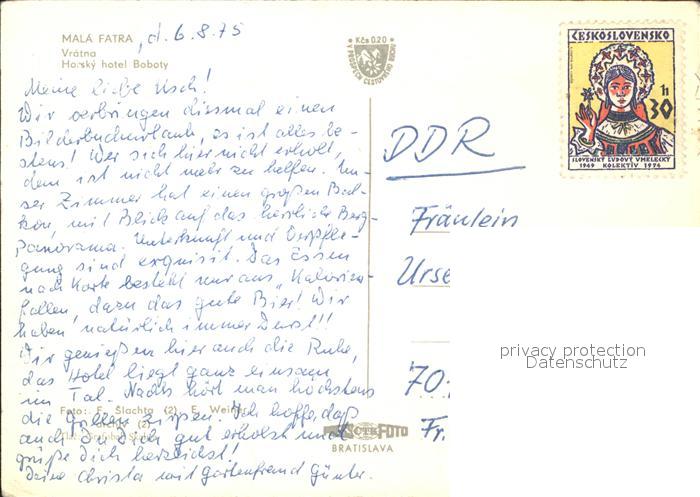 MALÁ FATRA, d. 6.8.75
Vrátna
Horský hotel Boboty
Meine liebe Usch!
Wir verbringen diesmal einen
Bilderbuchurlaub, es ist alles be-
stens! Wer sich hier nicht erholt,
dem ist nicht mehr zu helfen. Un-
ser Zimmer hat einen großen Bal-
kon, mit Blick auf das herrliche Berg-
panorama. Unterkunft und Verpfle-
gung sind exquisit. Das Essen
nach Karte besteht nur aus "Kalorien-
fallen, dazu das gute Bier! Wir
haben natürlich immer Durst!!
Wir genießen hier auch die Ruhe,
das Hotel liegt ganz einsam
im Tal. Nachts hört man höchstens
die Grillen zirpen. Ich hoffe, daß
auch Du Dich gut erholst und
grüße Dich herzlichst!
Deine Christa mit Gartenfreund Günter.
Foto: F. Šlachta (2), E.
Kčs 0.20
ČTK FOTO
BRATISLAVA
ČESKOSLOVENSKO
30 h
SLOVENSKÝ ĽUDOVÝ UMELECKÝ
1949 KOLEKTÍV 1974
DDR
Fräulein
Urse
70
Fr.
privacy protection
Datenschutz